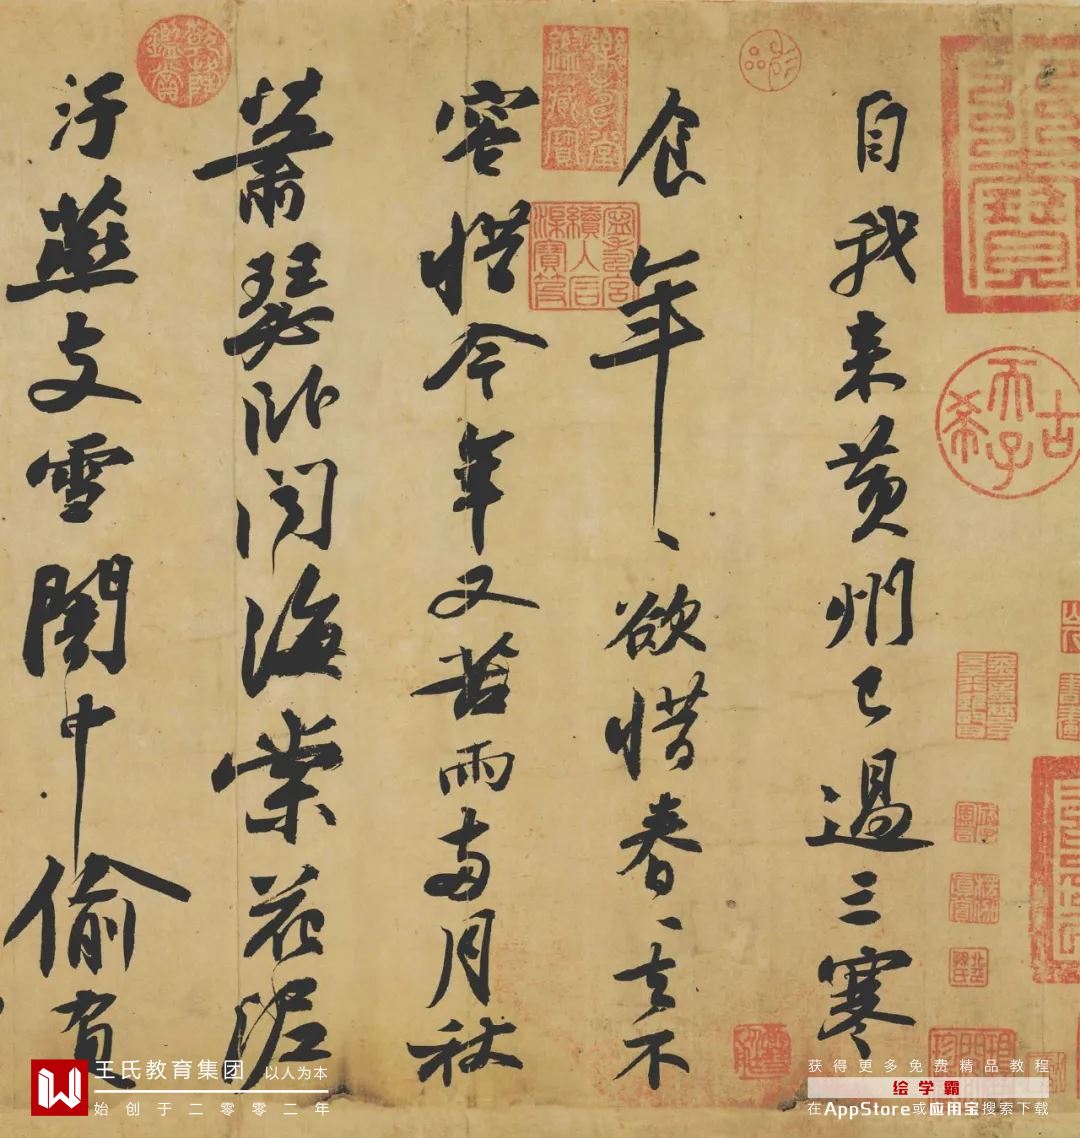 自我来黄州已過三寒
食年、欲惜春、去不
容惜今年又苦雨两月秋
蕭瑟卧闻海棠花泥
汙燕支雪闇中偷負
乾隆鑑賞
古希天子
王氏教育集团 以人为本
始创于二零零二年
获得更多免费精品教程
绘学霸
在AppStore或应用宝搜索下载